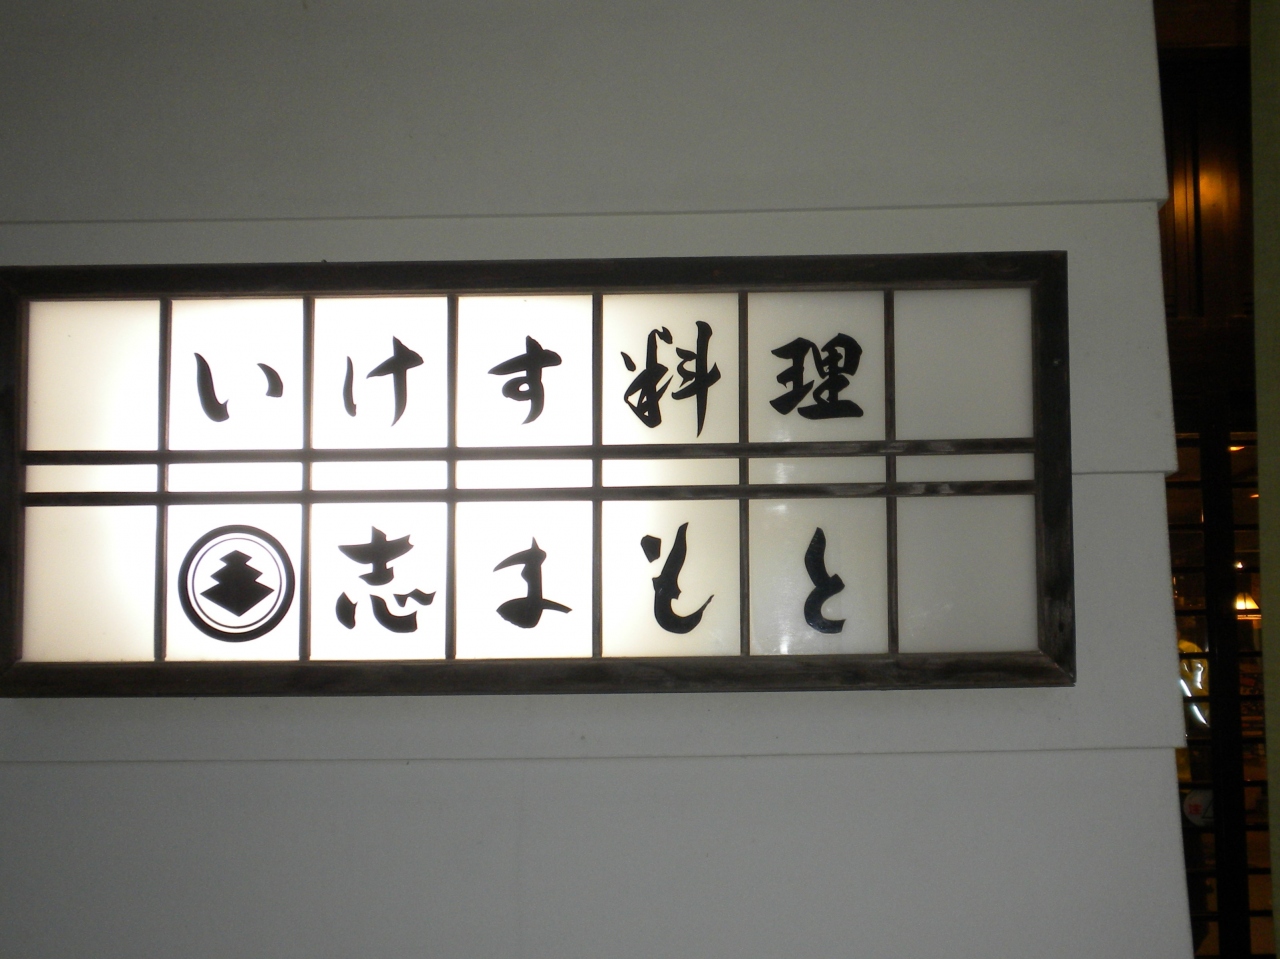 いけす料理
志まもと